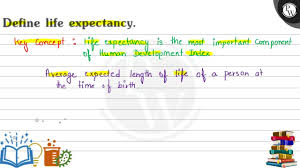 Define life expectancy.
Key Concept : life expectancy is the most important Component
of Human Development Index
Average expected length of life of a person at
the time of birth.